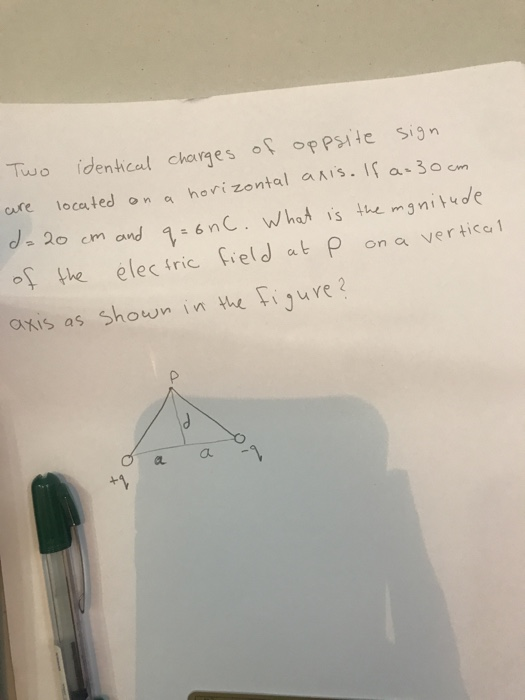 Two identical charges of oppsite sign
are located on a horizontal axis. If a=30 cm
d=20 cm and q=6nC. What is the mgnitude
of the electric field at P on a vertical
axis as shown in the figure?
P
d
a a -q
+q